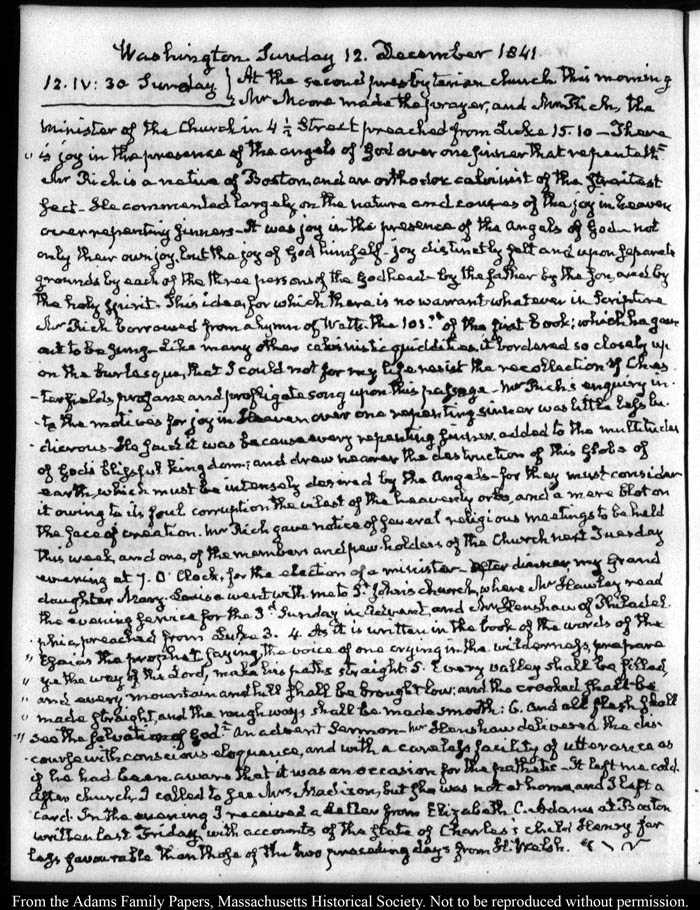 Washington Sunday 12. December 1841.
12. IV: 30 Sunday } At the second presbyterian church this morning
Mr Moore made the prayer, and Mr Rich, the
minister of the Church in 4 ½ Street preached from Luke 15. 10 — There
" is joy in the presence of the angels of God over one sinner that repenteth"
Mr Rich is a native of Boston and an orthodox calvinist of the straitest
sect — He commented largely on the nature and causes of the joy in heaven
over repenting sinners — It was joy in the presence of the Angels of God — not
only their own joy, but the joy of God himself — joy distinctly felt and upon separate
grounds by each of the three persons of the Godhead — by the father by the son, and by
the holy spirit. This idea, for which there is no warrant whatever in Scripture
Mr Rich borrowed from a hymn of Watts the 101.st of the first Book; which he gave
out to be sung — Like many other calvinistic quiddities, it bordered so closely up
on the burlesque, that I could not for my life resist the recollection of Ches-
-terfield's profane and profligate song upon this passage — Mr Rich's enquiry in-
-to the motives for joy in Heaven over one repenting sinner was little less lu-
-dicrous — He said it was because every repenting sinner, added to the multitudes
of God's blissful kingdom; and drew nearer the destruction of this Globe of
earth, which must be intensely desired by the Angels — for they must consider
it owing to its foul corruption the vilest of the heavenly orbs, and a mere blot on
the face of creation. Mr Rich gave notice of several religious meetings to be held
this week, and one, of the members and pew-holders of the Church next Tuesday
evening at 7. O'Clock, for the election of a minister — After dinner, my Grand
daughter Mary-Louisa went with me to St John's church, where Mr Hawley read
the evening service for the 3.d Sunday in Advent, and Mr Henshaw of Philadel-
-phia, preached from Luke 3. 4. As it is written in the book of the words of the
" Esaias the prophet, saying, the voice of one crying in the wilderness, prepare
" ye the way of the Lord, make his paths straight. 5. Every valley shall be filled,
" and every mountain and hill shall be brought low; and the crooked shall be
" made straight, and the rough ways shall be made smooth: 6. And all flesh shall
" see the salvation of God" — An advent Sermon — Mr Henshaw delivered the dis-
-course with conscious eloquence, and with a careless facility of utterance as
if he had been aware that it was an occasion for the pathetic — It left me cold.
After church, I called to see Mrs Madison, but she was not at home, and I left a
card. In the evening I received a letter from Elizabeth C. Adams at Boston
written last Friday, with accounts of the state of Charles's child Henry far
less favourable than those of the two preceding days from H. Welsh.
From the Adams Family Papers, Massachusetts Historical Society. Not to be reproduced without permission.